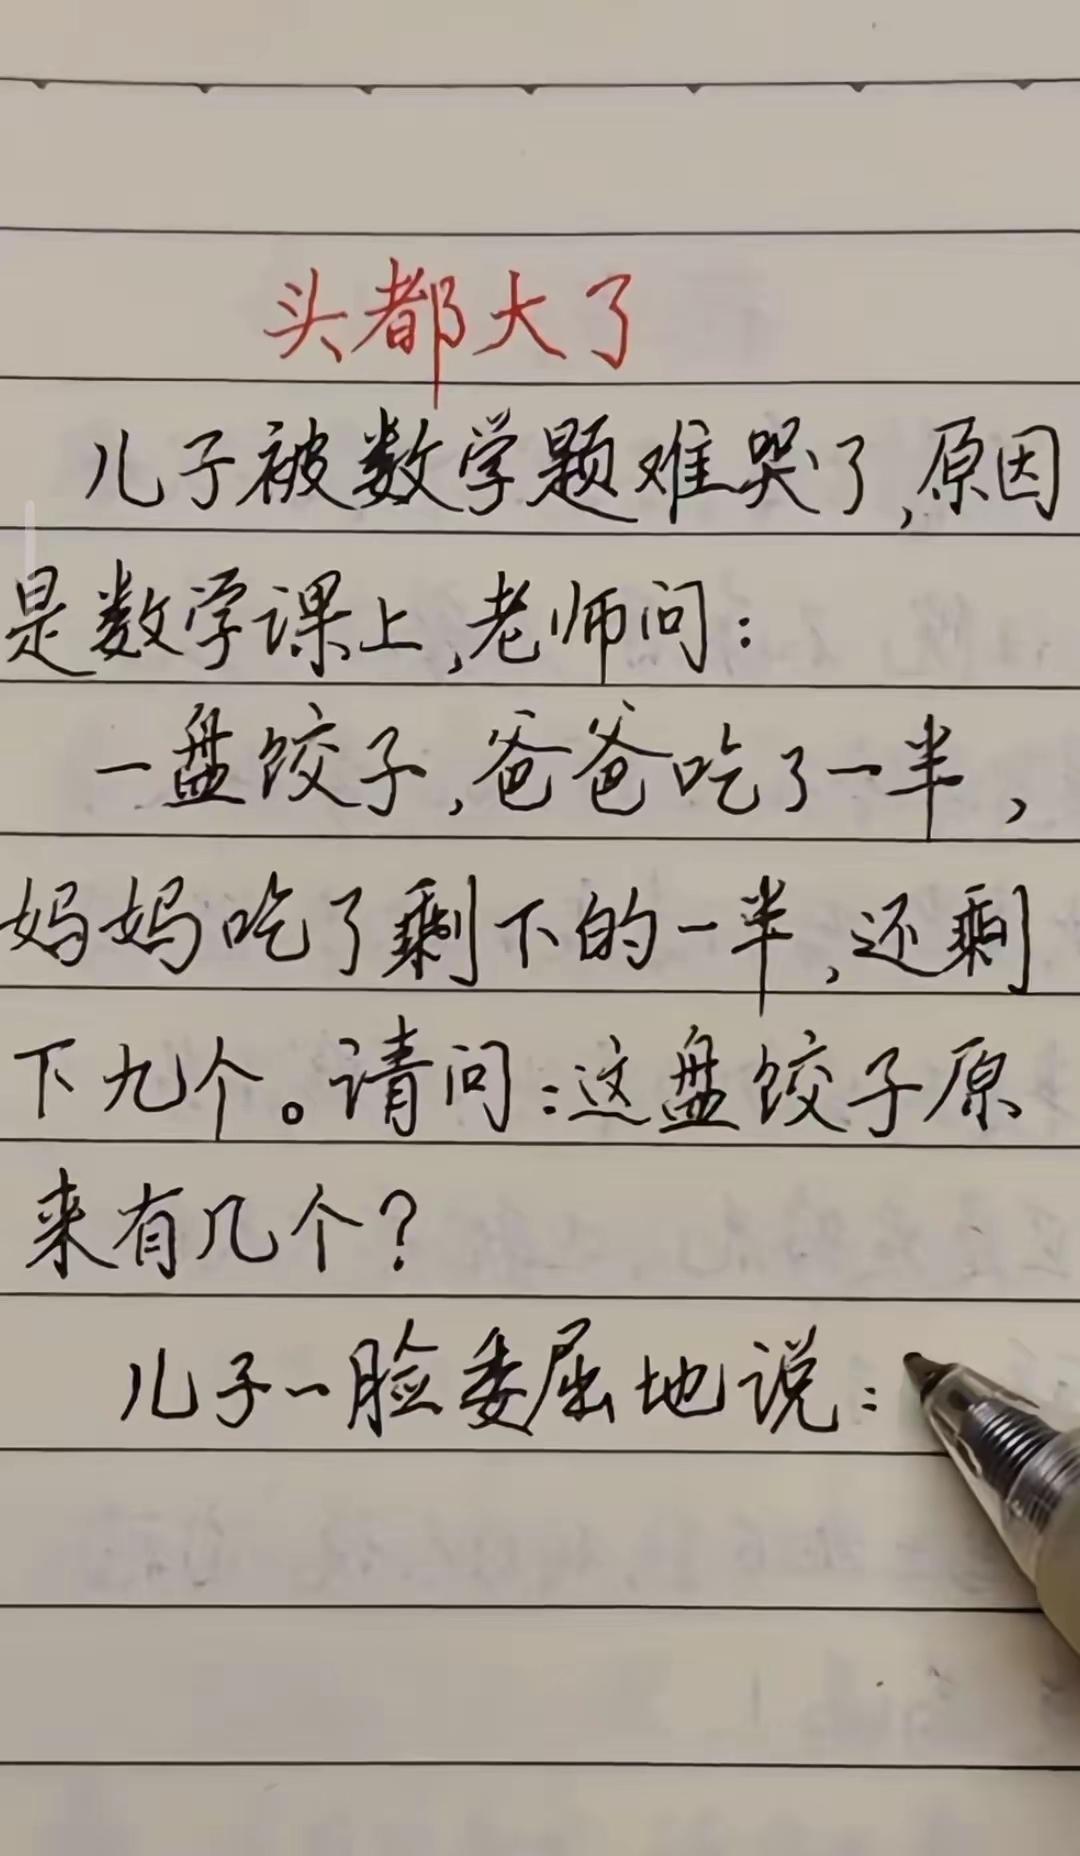 头都大了
儿子被数学题难哭了,原因
是数学课上,老师问:
一盘饺子,爸爸吃了一半,
妈妈吃了剩下的一半,还剩
下九个。请问:这盘饺子原
来有几个?
儿子一脸委屈地说: